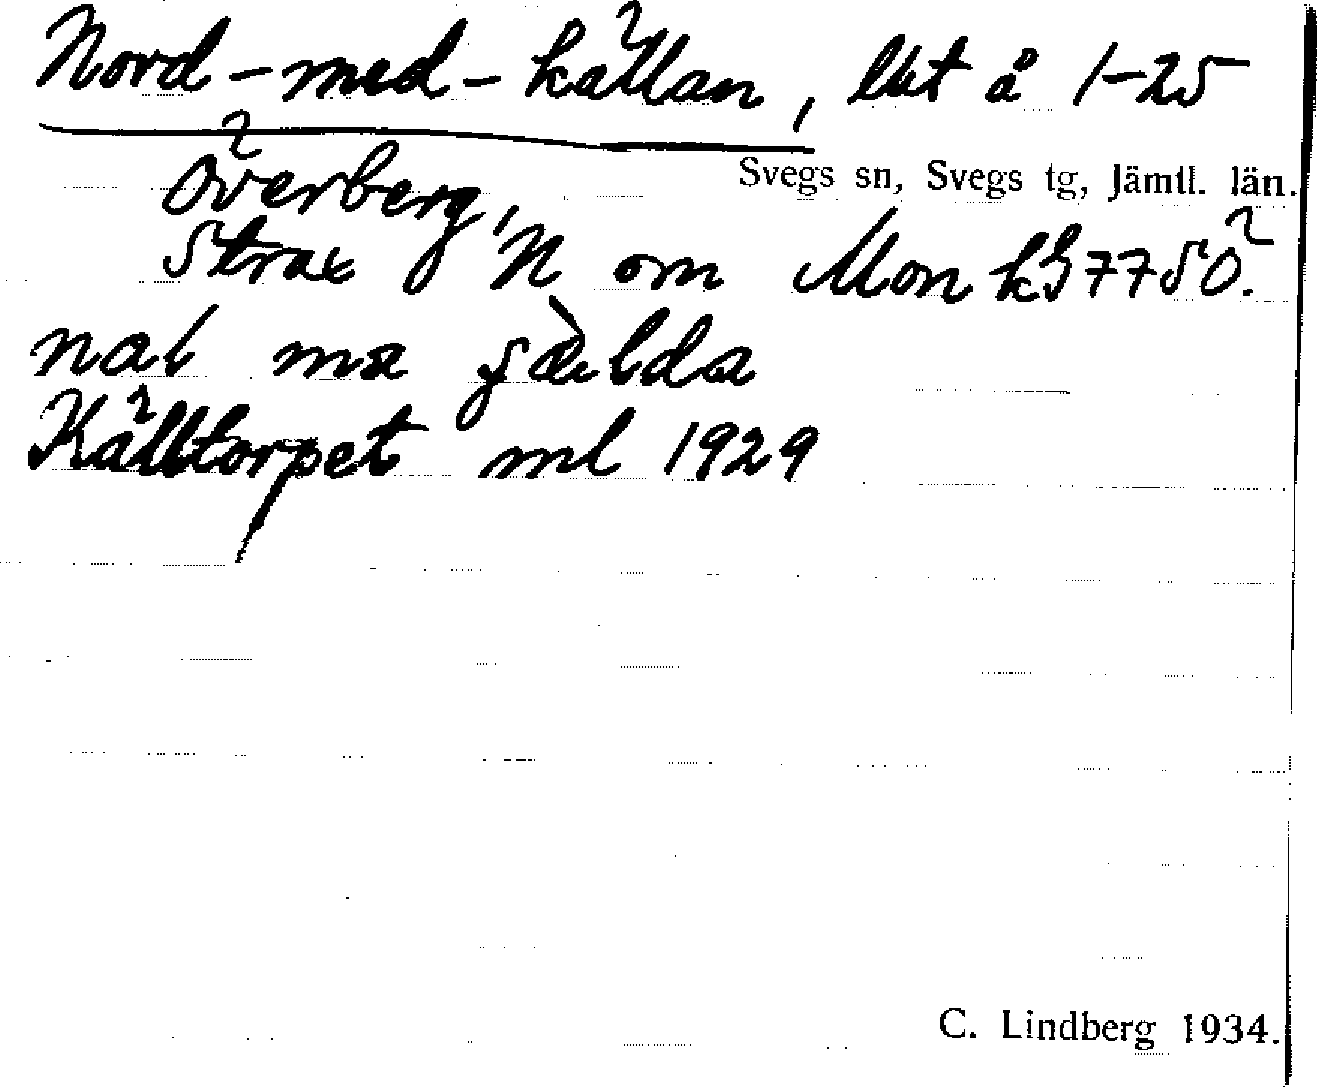 Nord-med-källan, lkt å 1-25
Överberg,
Svegs sn, Svegs tg, Jämtl. län.
Strax N om Mon kS 7750.
nal ma
Källtorpet ml 1929
C. Lindberg 1934.